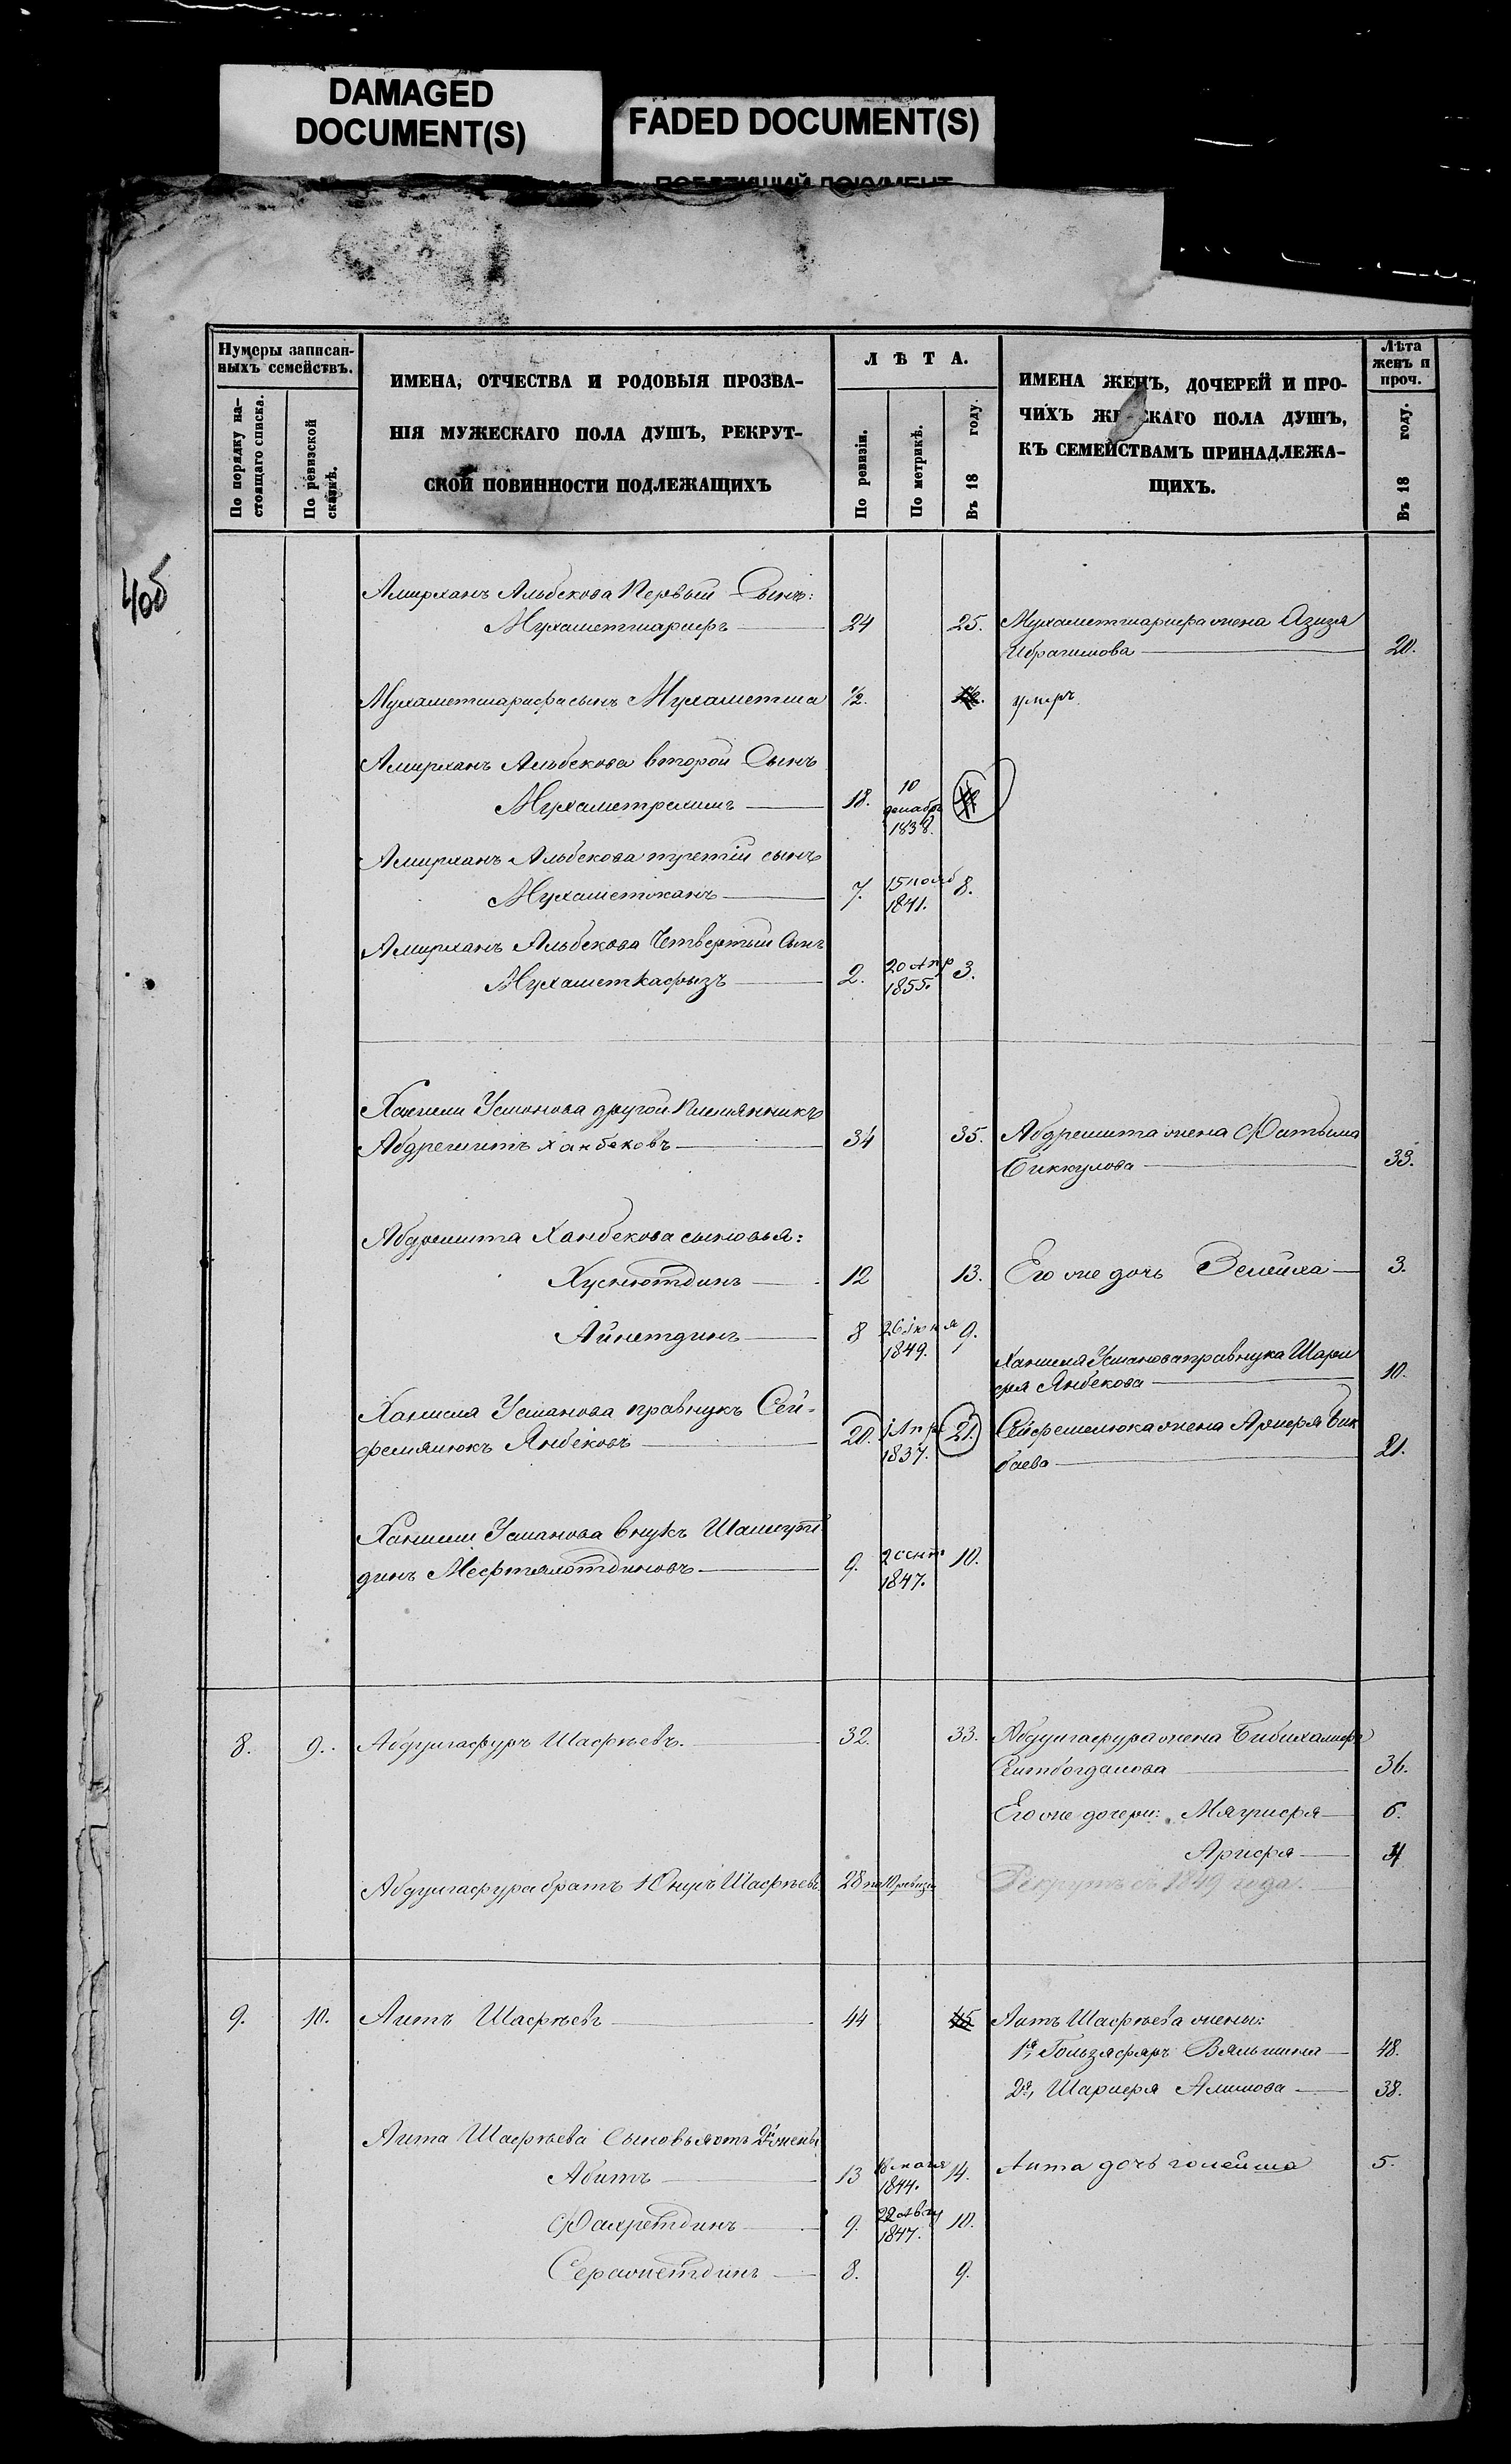 DAMAGED
DOCUMENT(S)
FADED DOCUMENT(S)
Нумеры записан-
ныхъ семействъ.
По порядку на-
стоящаго списка.
По ревизской
сказкѣ.
ИМЕНА, ОТЧЕСТВА И РОДОВЫЯ ПРОЗВА-
НІЯ МУЖЕСКАГО ПОЛА ДУШЪ, РЕКРУТ-
СКОЙ ПОВИННОСТИ ПОДЛЕЖАЩИХЪ
ЛѢТА.
По ревизіи.
По метрикѣ.
Въ 18 году.
ИМЕНА ЖЕНЪ, ДОЧЕРЕЙ И ПРО-
ЧИХЪ ЖЕНСКАГО ПОЛА ДУШЪ,
КЪ СЕМЕЙСТВАМЪ ПРИНАДЛЕЖА-
ЩИХЪ.
Лѣта
женъ и
проч.
Въ 18 году.
406
Амирханъ Альбекова Первый Сынъ:
Мухаметшарифъ 24 25. Мухаметшарифа жена Азизя
Ибрагимова 20.
Мухаметшарифа сынъ Мухаметша 1/2. умеръ
Амирханъ Альбекова второй Сынъ
Мухаметрахимъ 18. 10 декабр 1838.
Амирханъ Альбекова третій сынъ
Мухаметжанъ 7. 15 нояб 1841. 8.
Амирханъ Альбекова Четвертый Сынъ
Мухаметхафызъ 2. 20 Апр 1855. 3.
Усманова другой Племянникъ
Абдрешитъ Ханбековъ 34 35. Абдрешита жена Фатыма
Биккулова 33.
Абдрешита Ханбекова сыновья:
Хуснютдинъ 12 13. Его же дочь Зелейха 3.
Айнетдинъ 8 26 Іюня 1849. 9.
Усманова правнука Шари
фя Янбекова 10.
Усманова правнукъ Сей-
фемлюкъ Янбековъ 20. 1 Апр 1837. 21. Сейфемелюка жена Арифя Бик
баева 21.
Усманова внукъ Шамсут
динъ Мефтяхотдиновъ 9. 2 сент 1847. 10.
8. 9. Абдулгафуръ Шафѣевъ. 32. 33. Абдулгафура жена
Сеитбогданова 36.
Его же дочери: Мягрифя 6.
Арифя 4
Абдулгафура братъ Юнусъ Шафѣевъ 28 по 10 ревизіи Рекрутъ съ 1849 года.
9. 10. Аитъ Шафѣевъ 44 45 Аитъ Шафѣева жены:
1я, Гользяфаръ Вяльшина 48.
2я, Шарифя Алимова 38.
Аита Шафѣева Сыновья отъ 2й жены
Абитъ 13 1844. 14. Аита дочь 5.
Фахретдинъ 9. 22 Авгу 1847. 10.
Серазетдинъ 8. 9.